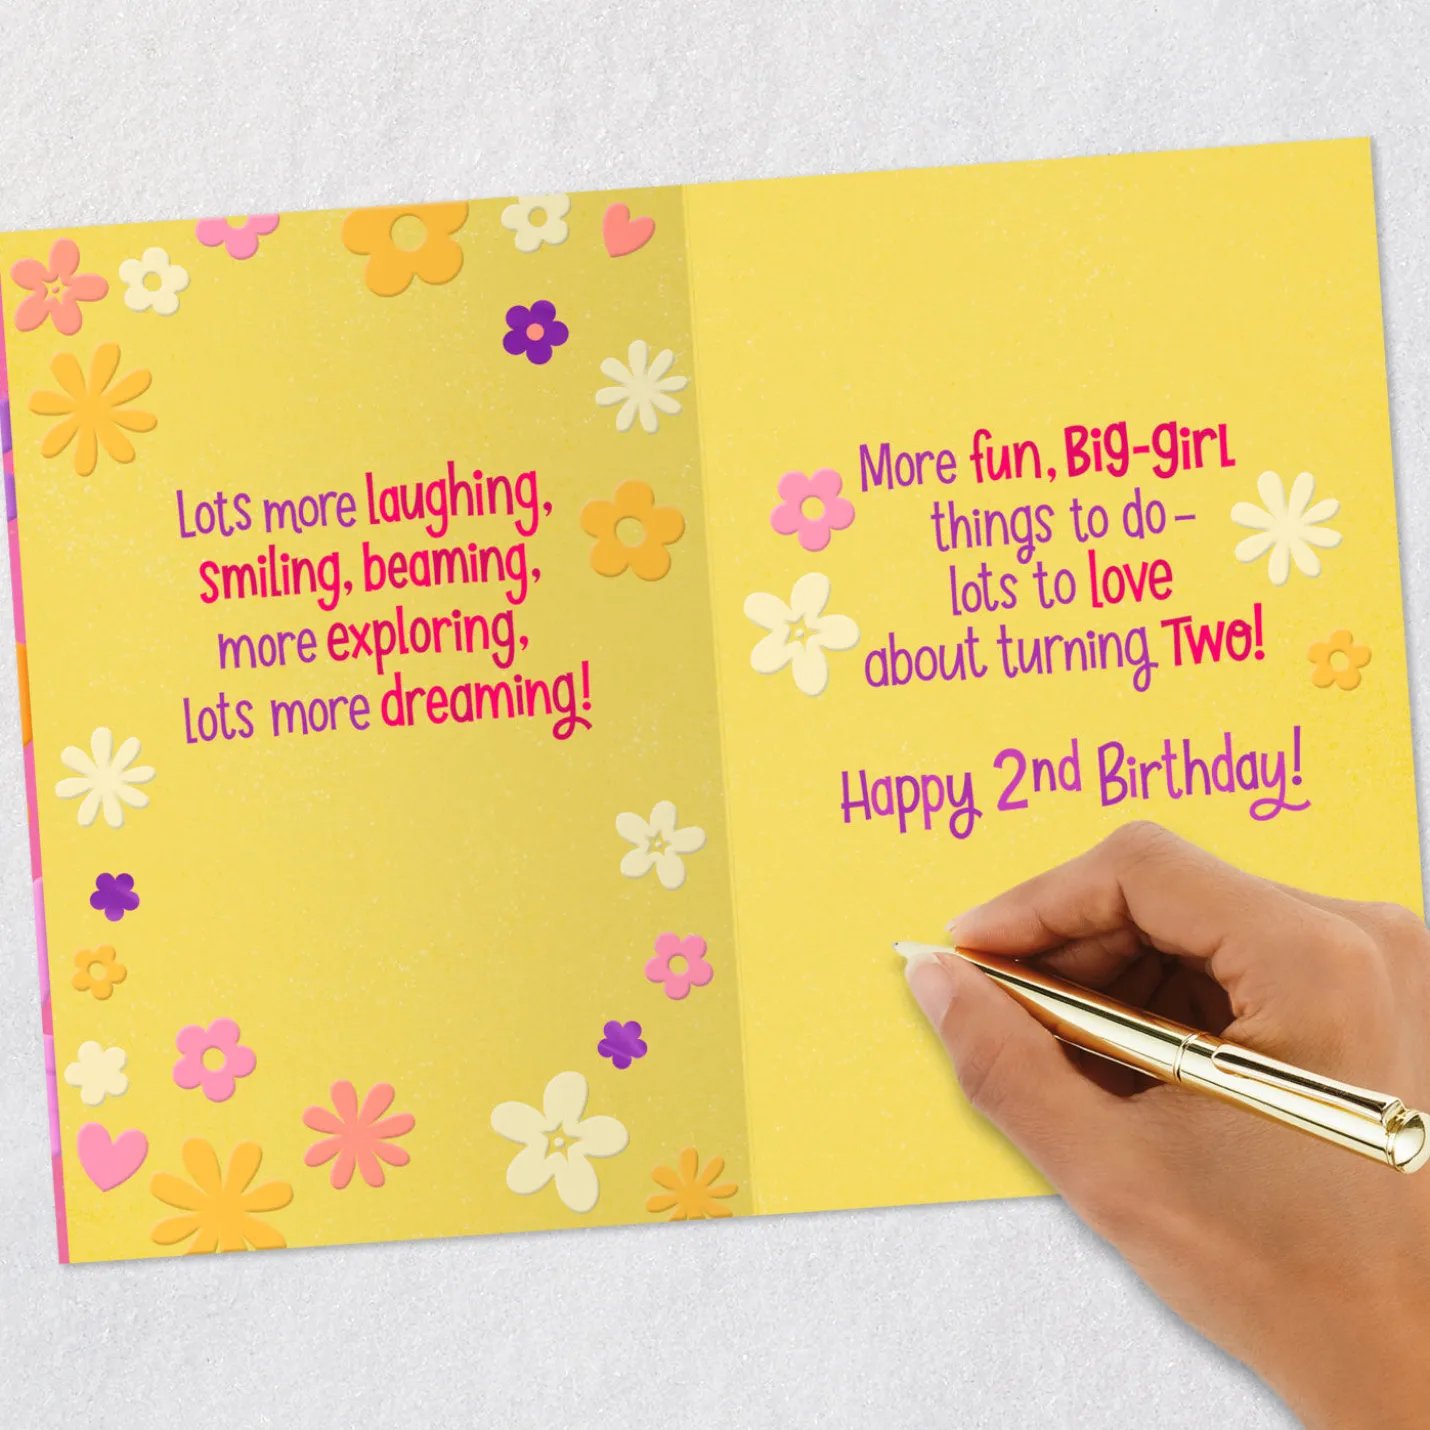 Lots more laughing,
smiling, beaming,
more exploring,
lots more dreaming!
More fun, Big-girl
things to do–
lots to love
about turning Two!
Happy 2nd Birthday!